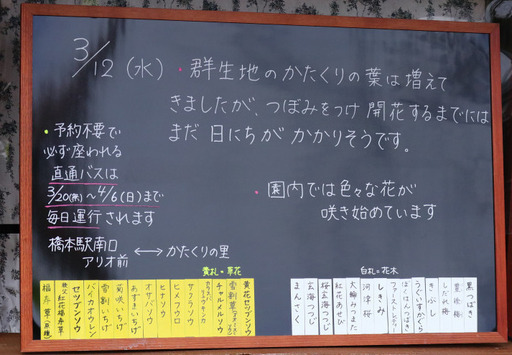 3/12（水）
・群生地のかたくりの葉は増えて
きましたが、つぼみをつけ開花するまでには
まだ日にちがかかりそうです。
・予約不要で
必ず座われる
直通バスは
3/20(木)～4/6(日)まで
毎日運行されます
橋本駅南口
アリオ前 ⟷ かたくりの里
・園内では色々な花が
咲き始めています
黄札＝草花
福寿草(原種)
秩父紅花福寿草
セツブンソウ
バイカオウレン
雪割いちげ
菊咲いちげ
あずまいちげ
オサバソウ
ヒナソウ
ヒメフウロ
サクラソウ
チャルメルソウ
黄花セツブンソウ
白札＝花木
まんさく
玄海つつじ
桜玄海つつじ
紅花あせび
大輪みつまた
河津桜
しきみ
うぐいすかぐら
きぶし
しだれ梅
豊後梅
黒つばき